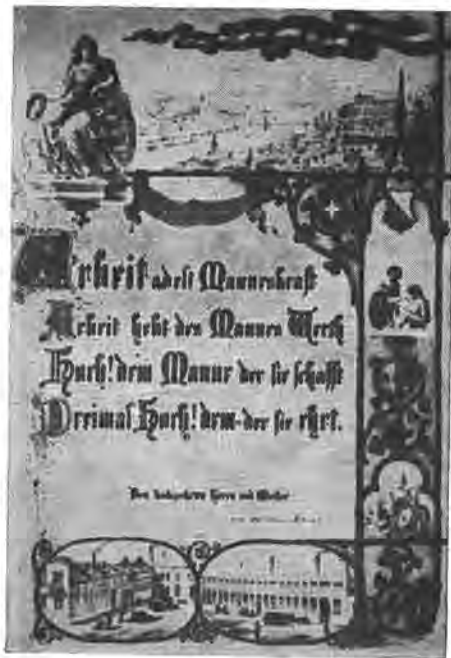 Arbeit adelt Manneskraft
Arbeit hebt des Mannes Werth
Hoch! dem Manne der sie schafft
Dreimal Hoch! dem der sie ehrt.
Dem Herrn und Meister